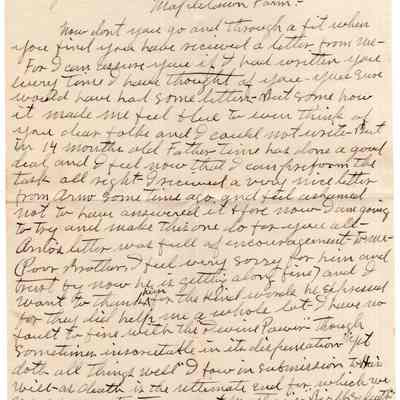 Mapletown Farm.-
Now dont you go and through a fit when
you find you have recieved a letter from me-
For I can assure you if I had written you
every time I have thought of you- you sure
would have had some letters- But some how
it made me feel blue to even think of
you dear folks and I could not write- But
in 14 months old Father time has done a good
deal and I feel now that I can preform the
task all right I recieved a very nice letter
from Arno some time ago, and feel ashamed
not to have answered it before now I am going
to try and make this one do for you all-
Arno's letter was full of encouragement to me-
(Poor Brother I feel very sorry for him and
trust by now he is getting along fine) and I
want to thank him for the kind words he expressed
for they did help me a whole lot- I have no
fault to find with the Devine Power though
sometimes in its dispensation "Yet
doth all things well" I bow in submission to His
will- as death is the ultimate end for which we